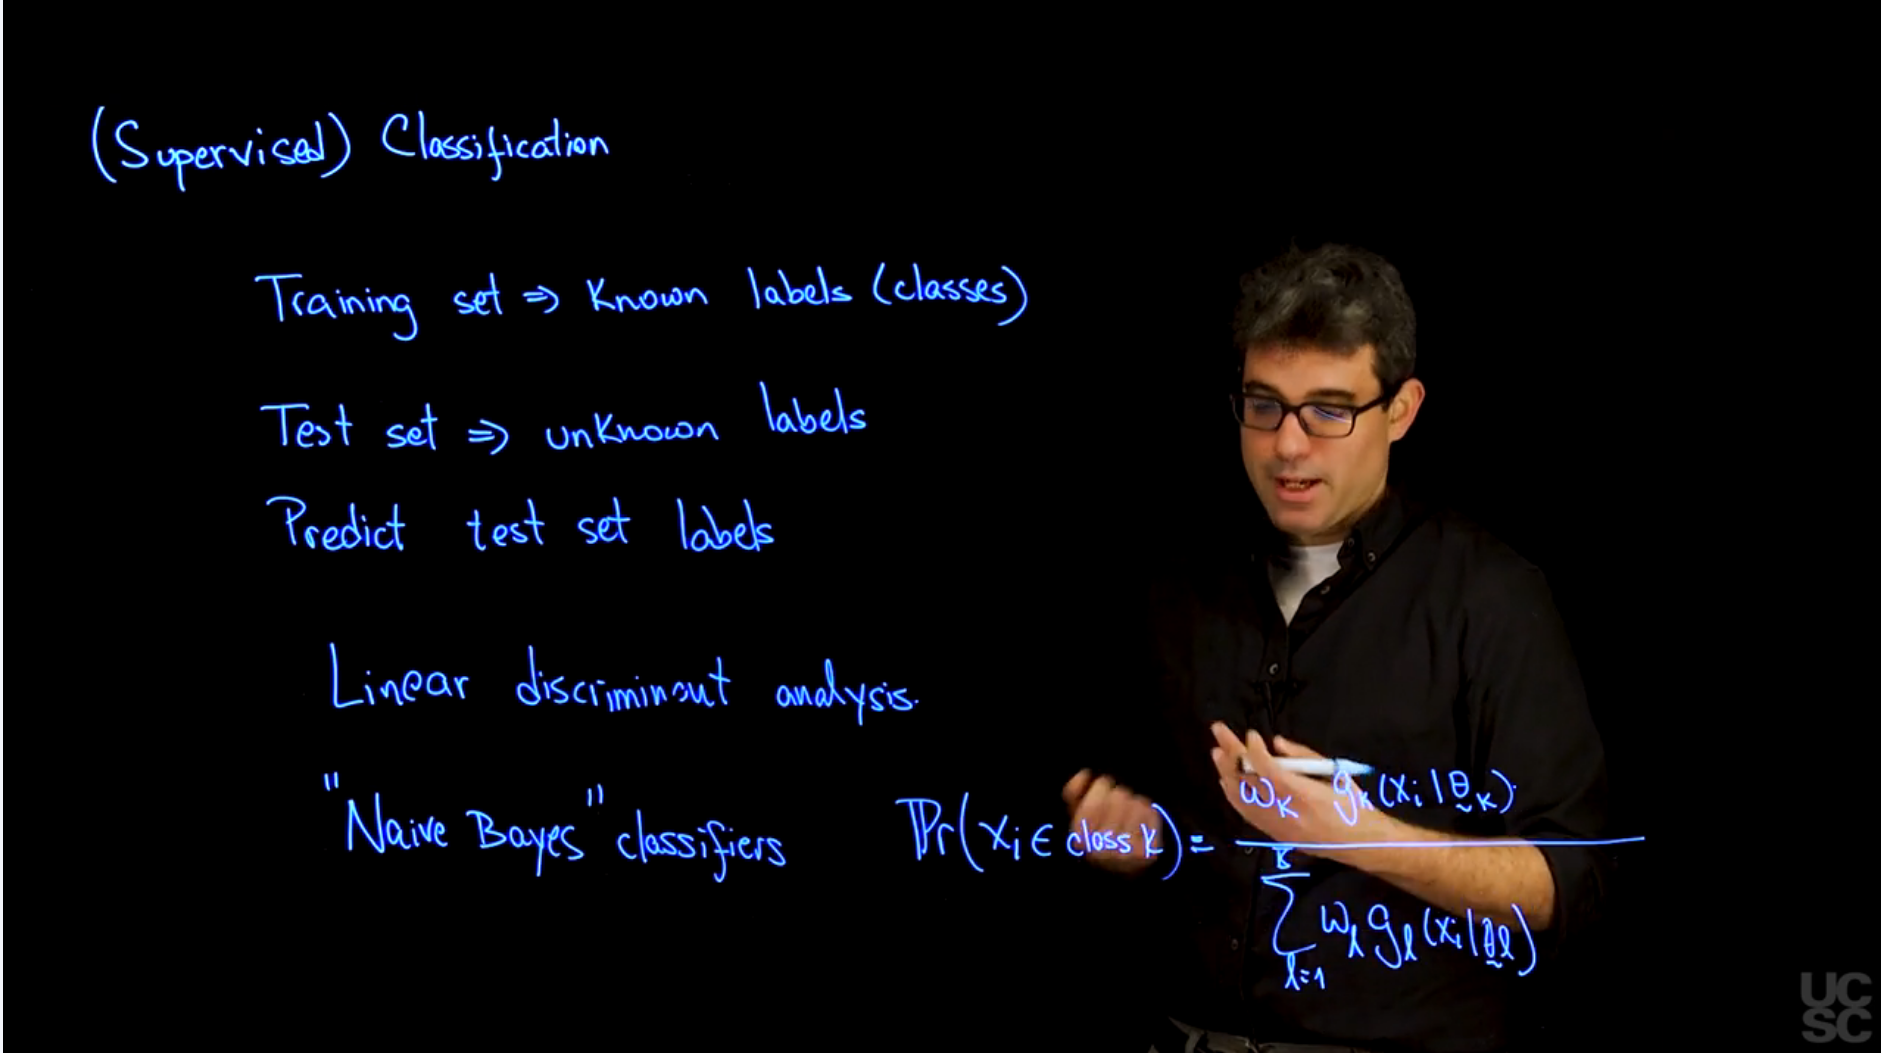 (Supervised) Classification
Training set ⇒ Known labels (classes)
Test set ⇒ unknown labels
Predict test set labels
Linear discriminant analysis.
"Naive Bayes" classifiers Pr(xᵢ ∈ class k) = ω_K g_K(xᵢ|θ̰_K) / ∑_{l=1}^{K} ω_l g_l(xᵢ|θ̰_l)
UC
SC